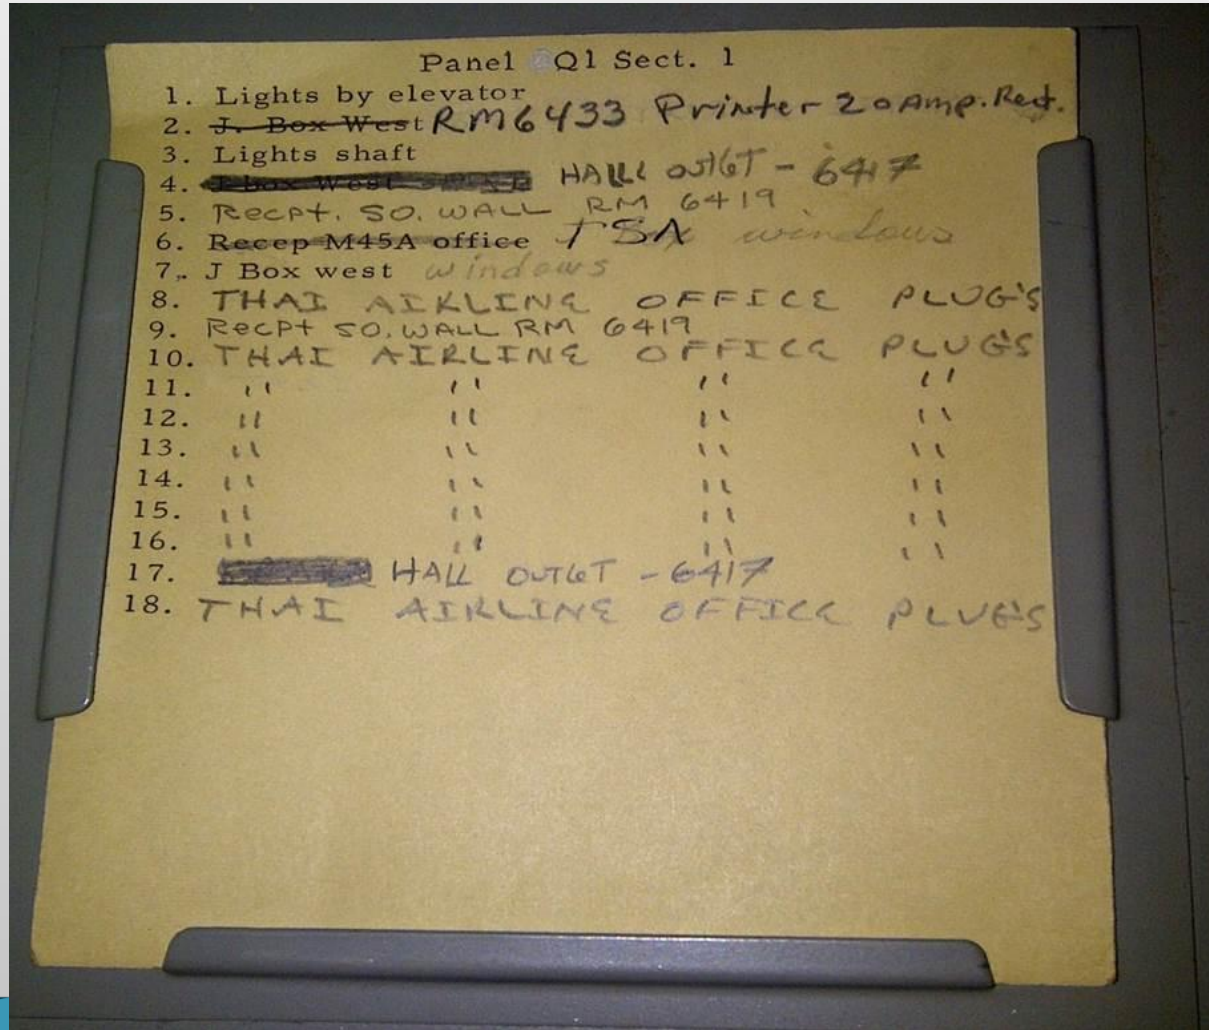 Panel Q1 Sect. 1
1. Lights by elevator
2. J. Box West RM6433 Printer 20 Amp. Rect.
3. Lights shaft
4. HALL OUTLET - 6417
5. Recpt. SO. WALL RM 6419
6. Recep M45A office TSA windows
7. J Box west windows
8. THAI AIRLINE OFFICE PLUG'S
9. Recpt SO. WALL RM 6419
10. THAI AIRLINE OFFICE PLUG'S
11. " " " "
12. " " " "
13. " " " "
14. " " " "
15. " " " "
16. " " " "
17. HALL OUTLET - 6417
18. THAI AIRLINE OFFICE PLUG'S